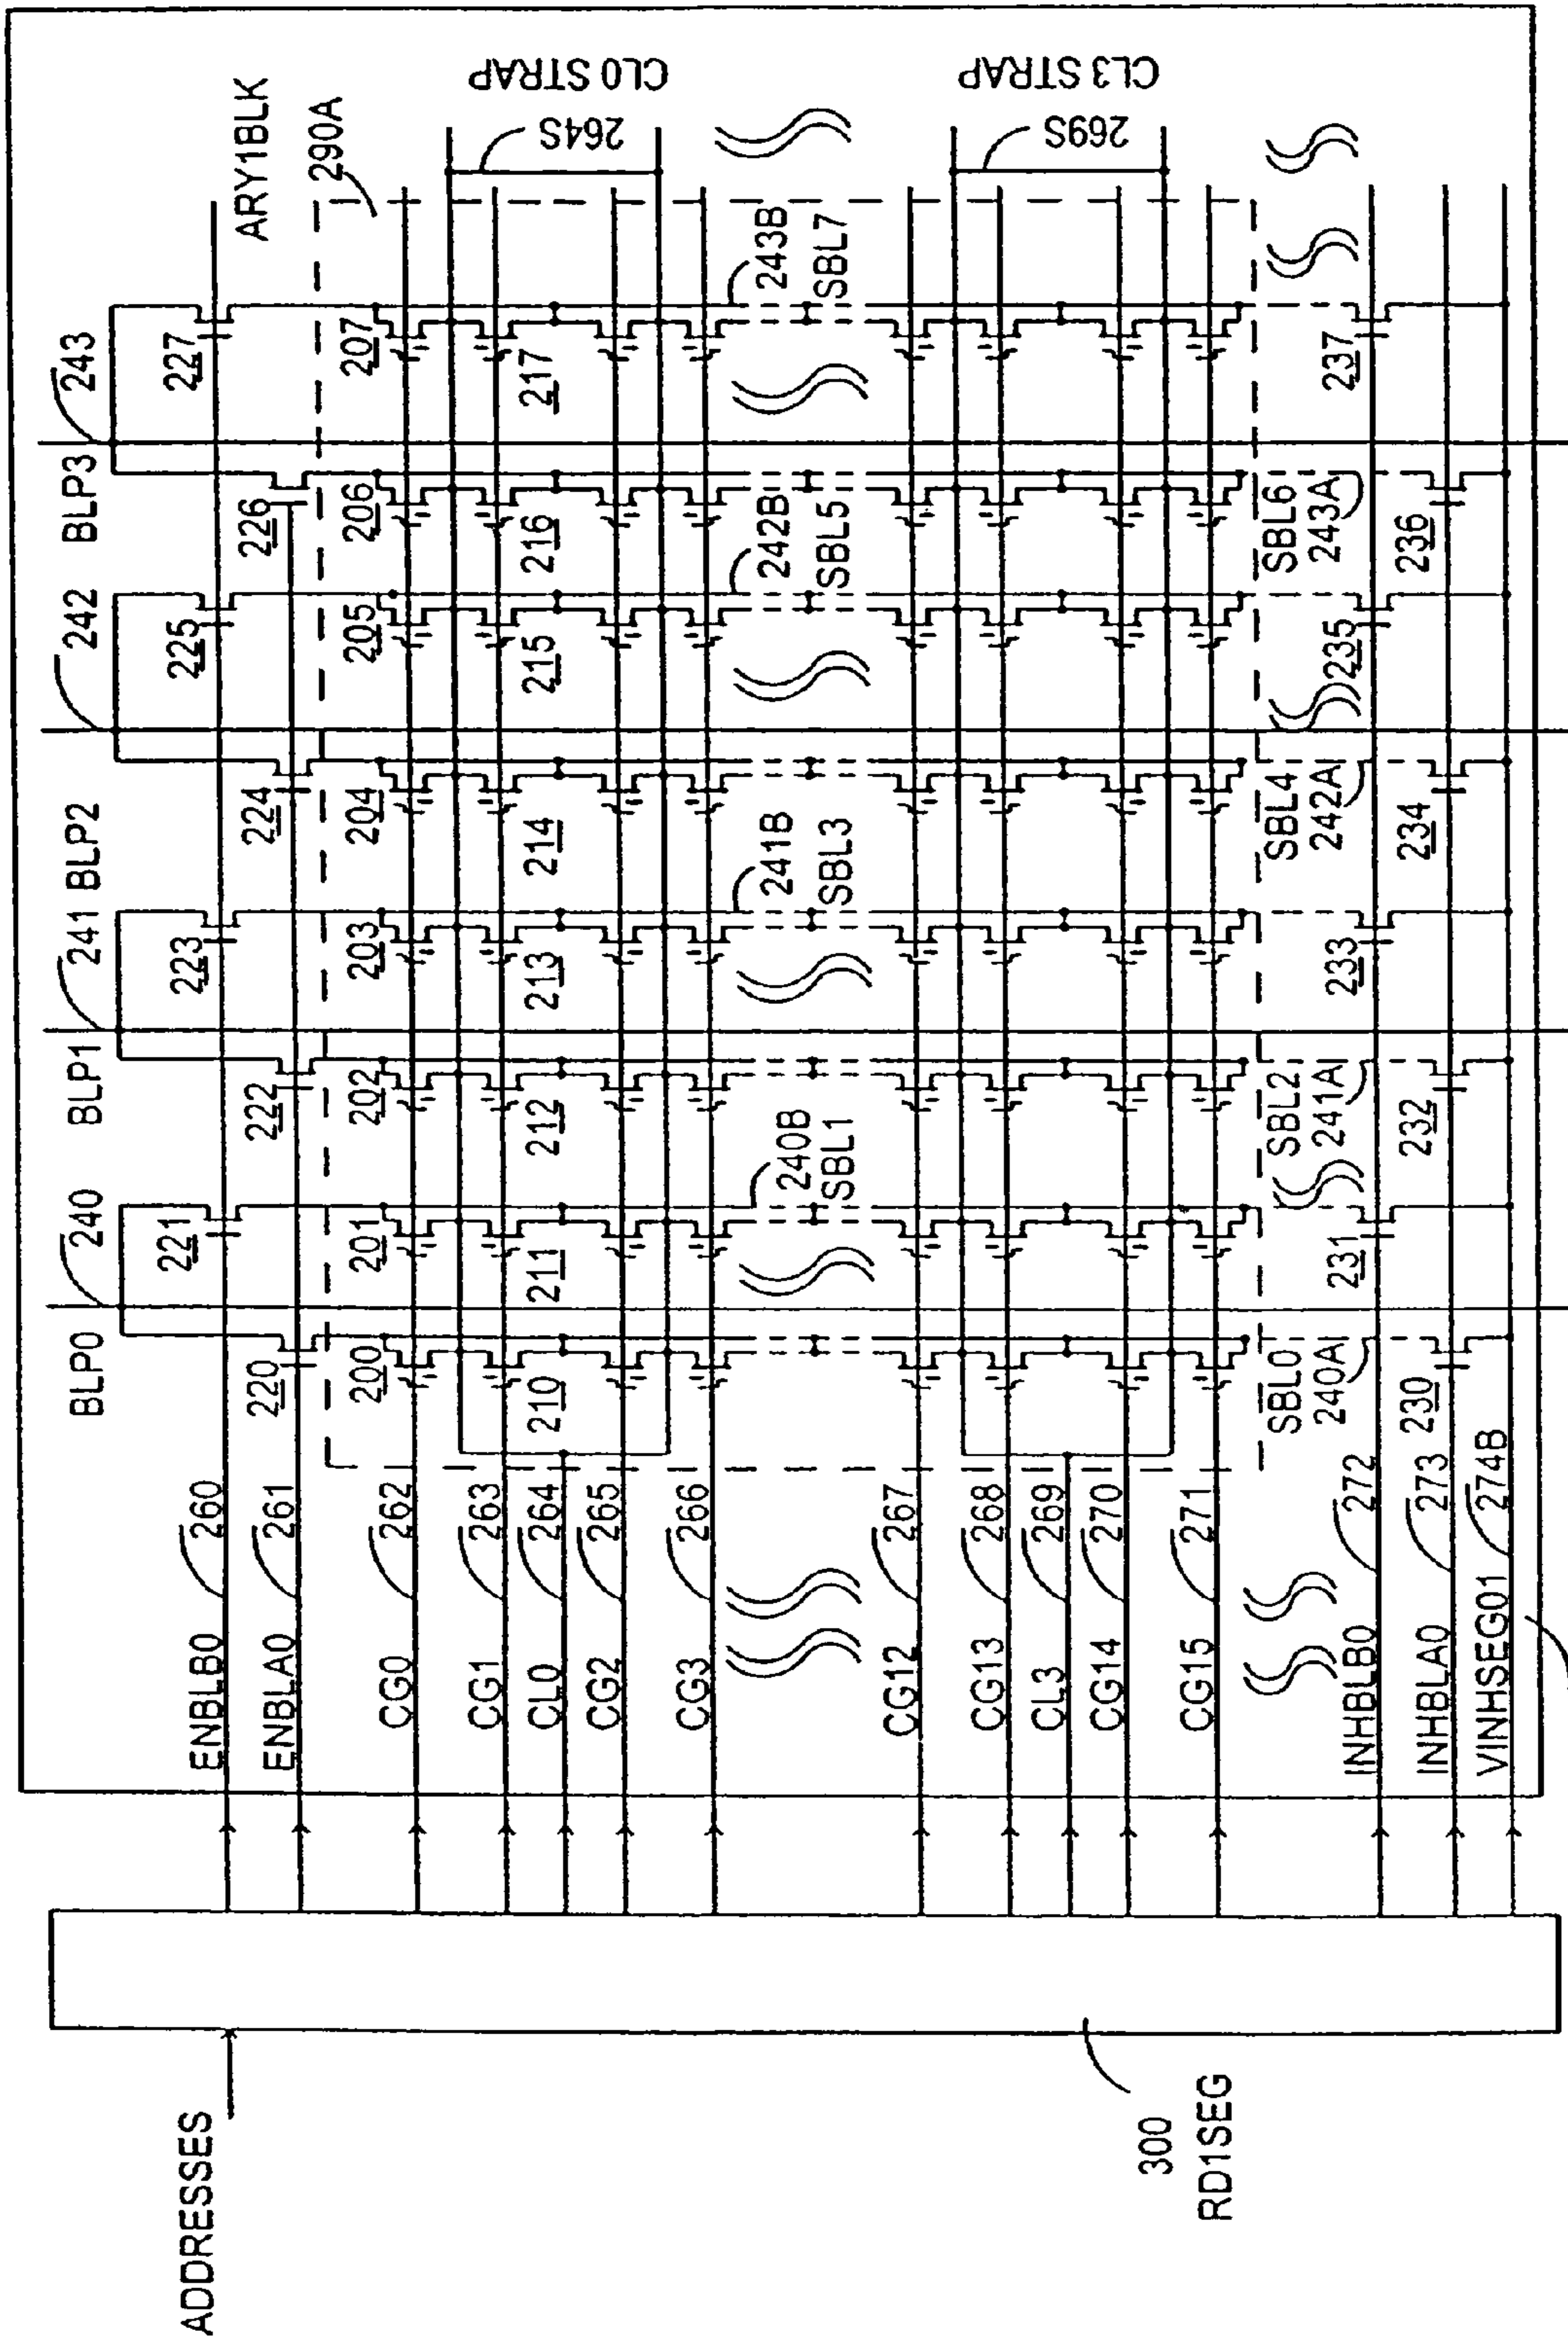 ADDRESSES
300
RD1SEG
ENBLB0 260
ENBLA0 261
CG0 262
CG1 263
CL0 264
CG2 265
CG3 266
CG12 267
CG13 268
CL3 269
CG14 270
CG15 271
INHBLB0 272
INHBLA0 273
VINHSEG01 274B
BLP0 240
BLP1 241
BLP2 242
BLP3 243
220 221 222 223 224 225 226 227
ARY1BLK
290A
200 201 202 203 204 205 206 207
210 211 212 213 214 215 216 217
264S
CL0 STRAP
240B
SBL1
241B
SBL3
242B
SBL5
243B
SBL7
269S
CL3 STRAP
SBL0
240A
SBL2
241A
SBL4
242A
SBL6
243A
231 233 235 237
230 232 234 236